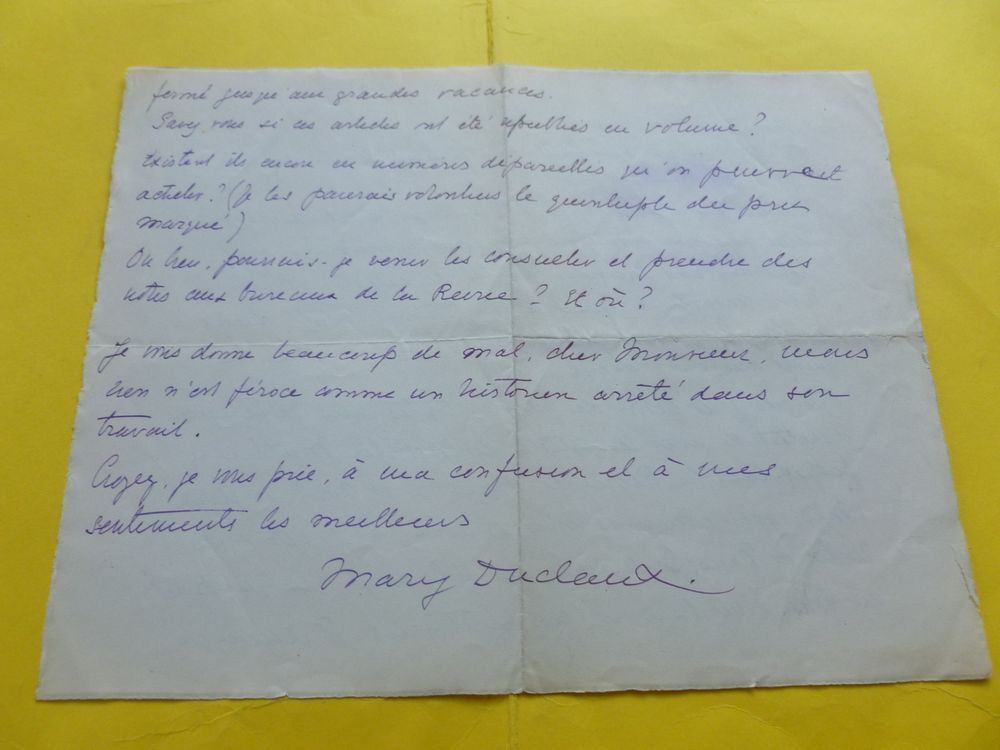 fermé jusqu'aux grandes vacances.
Savez vous si ces articles ont été republiés en volume ?
Existent ils encore en numéros dépareillés qu'on pourrait
acheter ? (Je les paierais volontiers le quintuple du prix
marqué)
Ou bien, pourrais-je venir les consulter et prendre des
notes aux bureaux de la Revue ? Et où ?
Je vous donne beaucoup de mal, cher Monsieur, mais
rien n'est féroce comme un historien arrêté dans son
travail.
Croyez, je vous prie, à ma confusion et à mes
sentiments les meilleurs
Mary Duclaux.